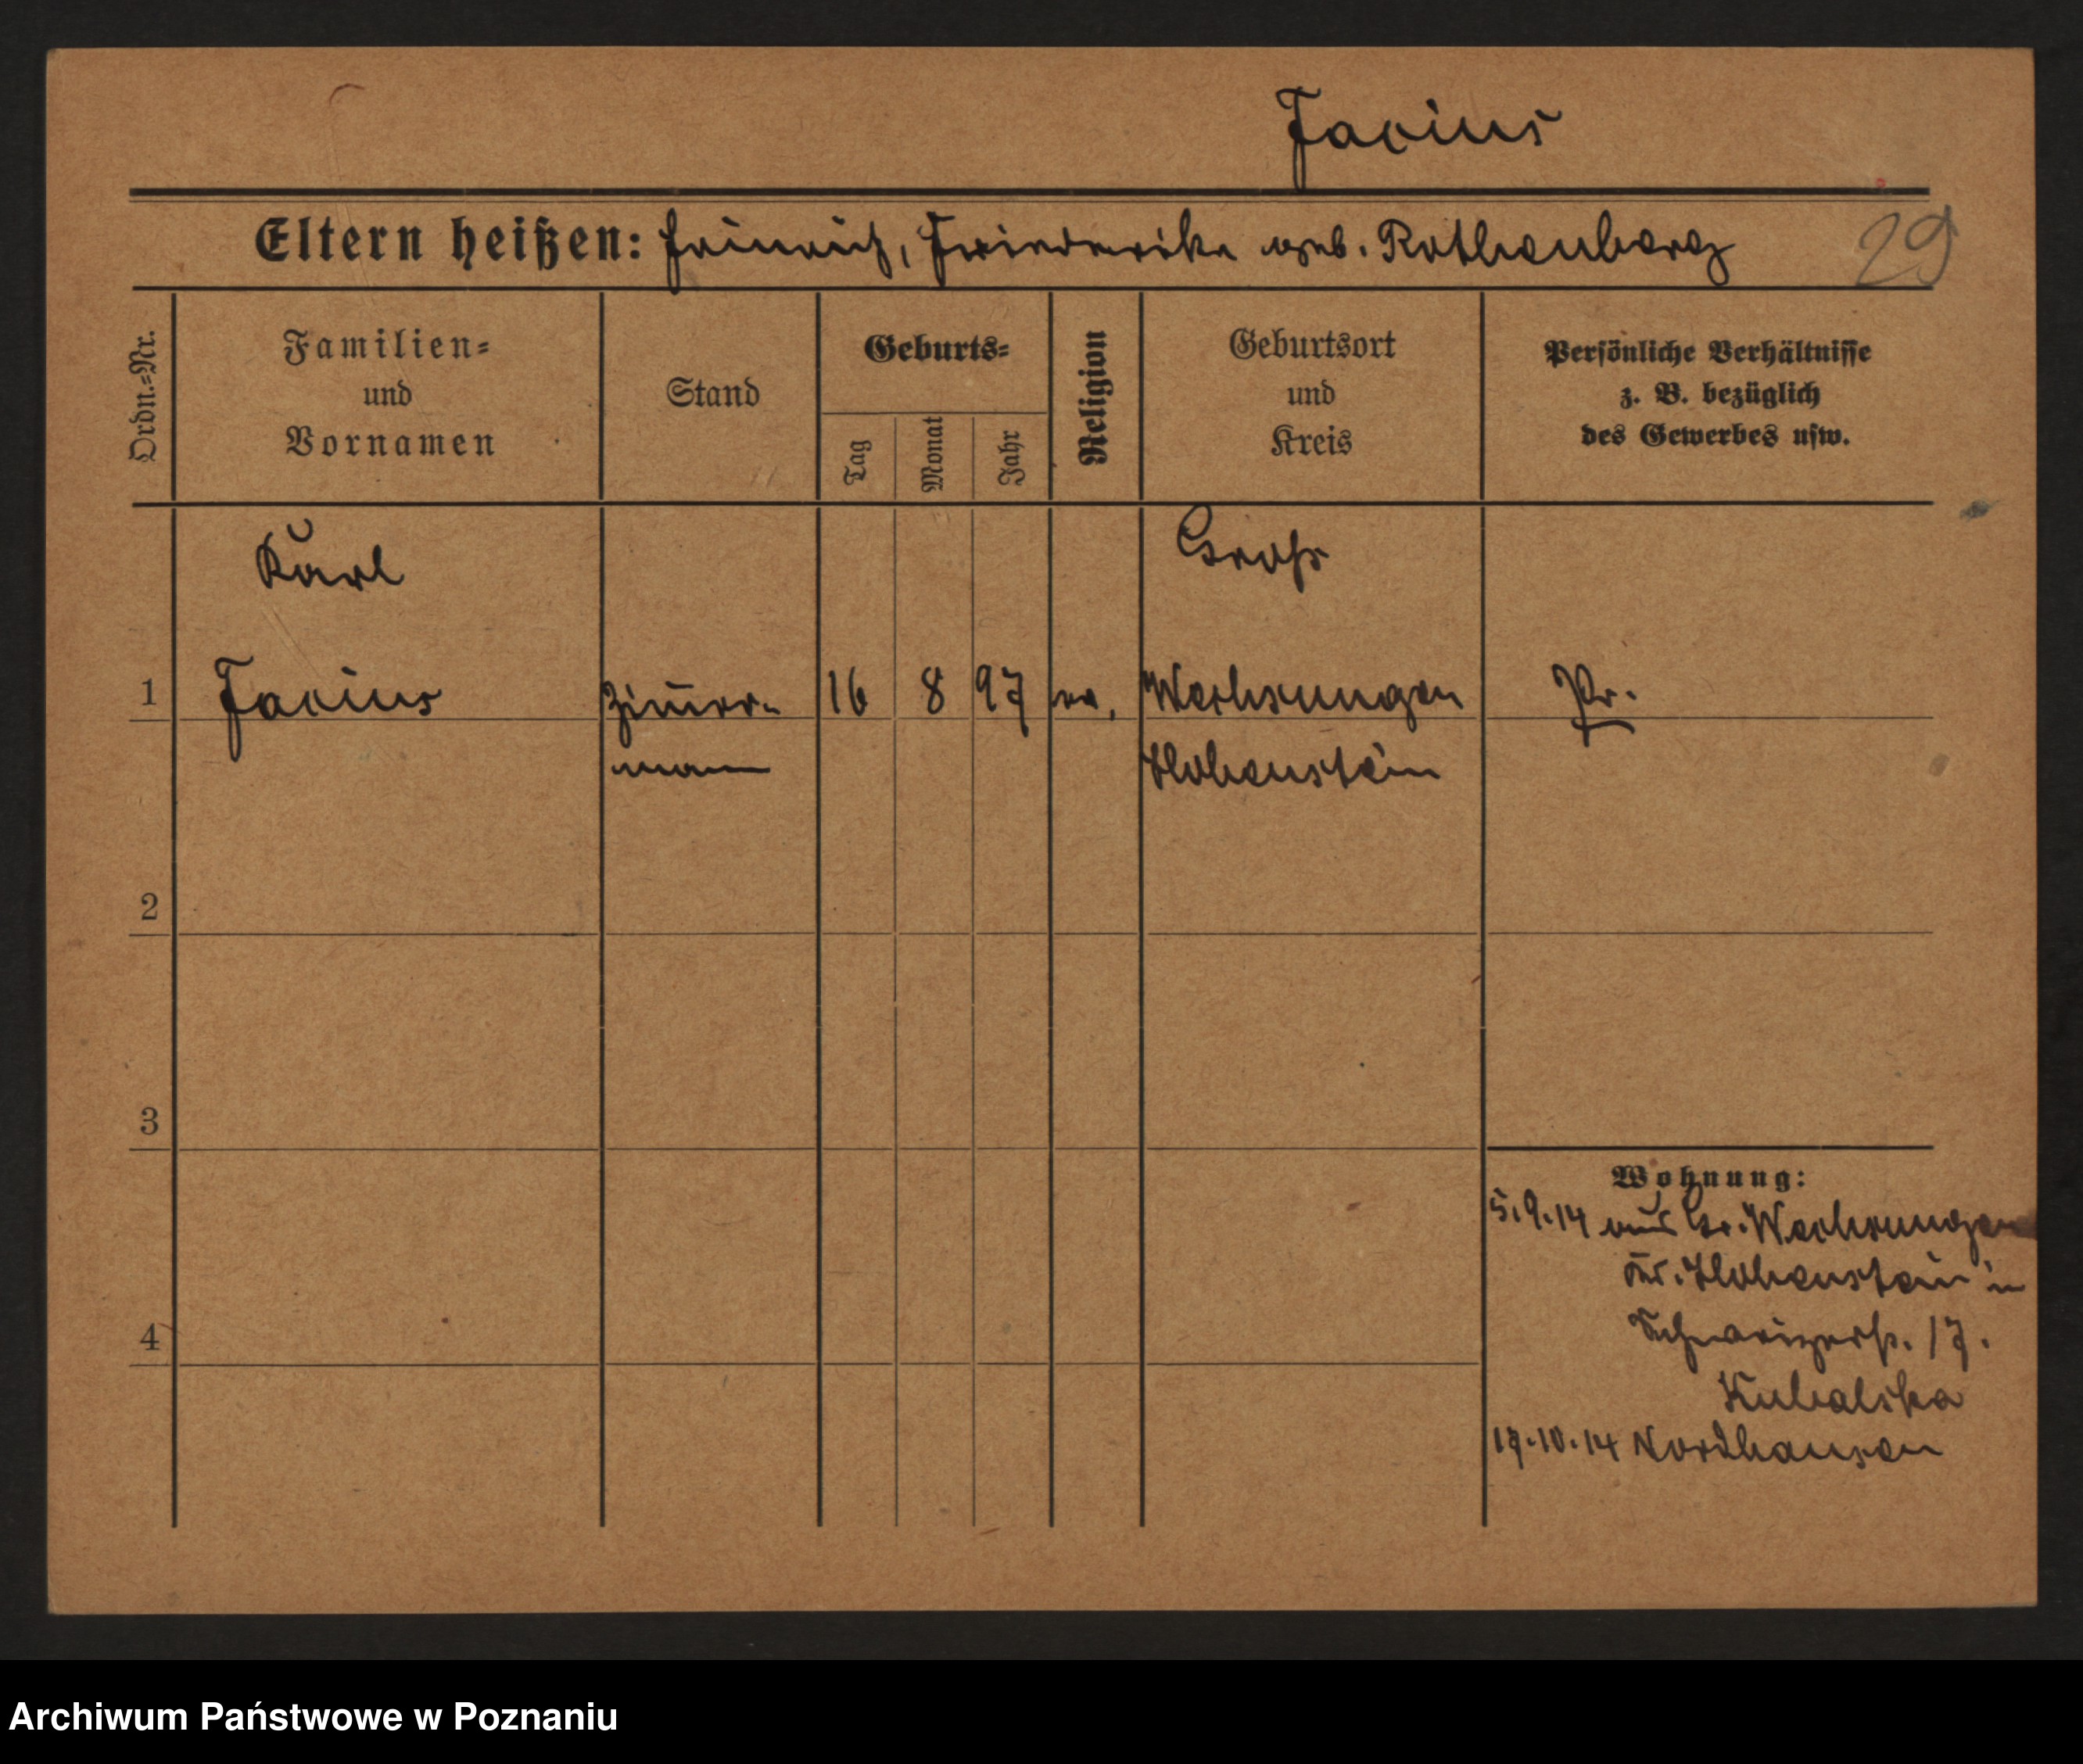 Facius
Eltern heißen: Heinrich, Friederike geb. Rothenberg 29
Ordn.=Nr.
Familien=
und
Vornamen
Stand
Geburts=
Tag
Monat
Jahr
Religion
Geburtsort
und
Kreis
Persönliche Verhältnisse
z. B. bezüglich
des Gewerbes usw.
Karl
Groß
1 Facius Zimmer- 16 8 97 ev. Wechsungen Pr.
mann Hohenstein
2
3
4
Wohnung:
5.9.14 aus Gr. Wechsungen
Kr. Hohenstein in
17.
Kubalska
17.10.14 Nordhausen
Archiwum Państwowe w Poznaniu